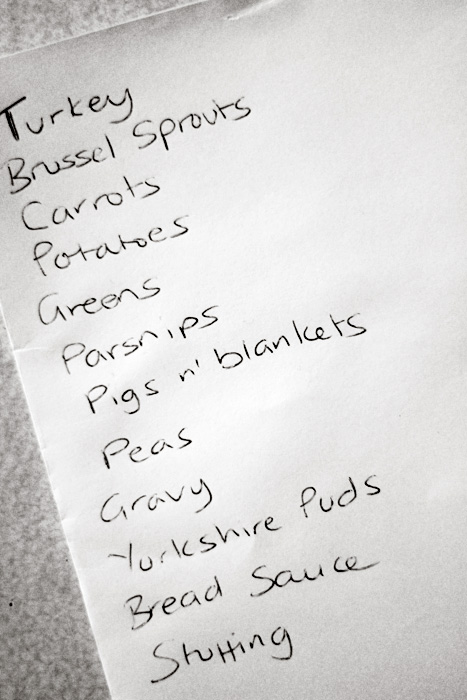 Turkey
Brussel Sprouts
Carrots
Potatoes
Greens
Parsnips
Pigs n' blankets
Peas
Gravy
Yorkshire Puds
Bread Sauce
Stuffing